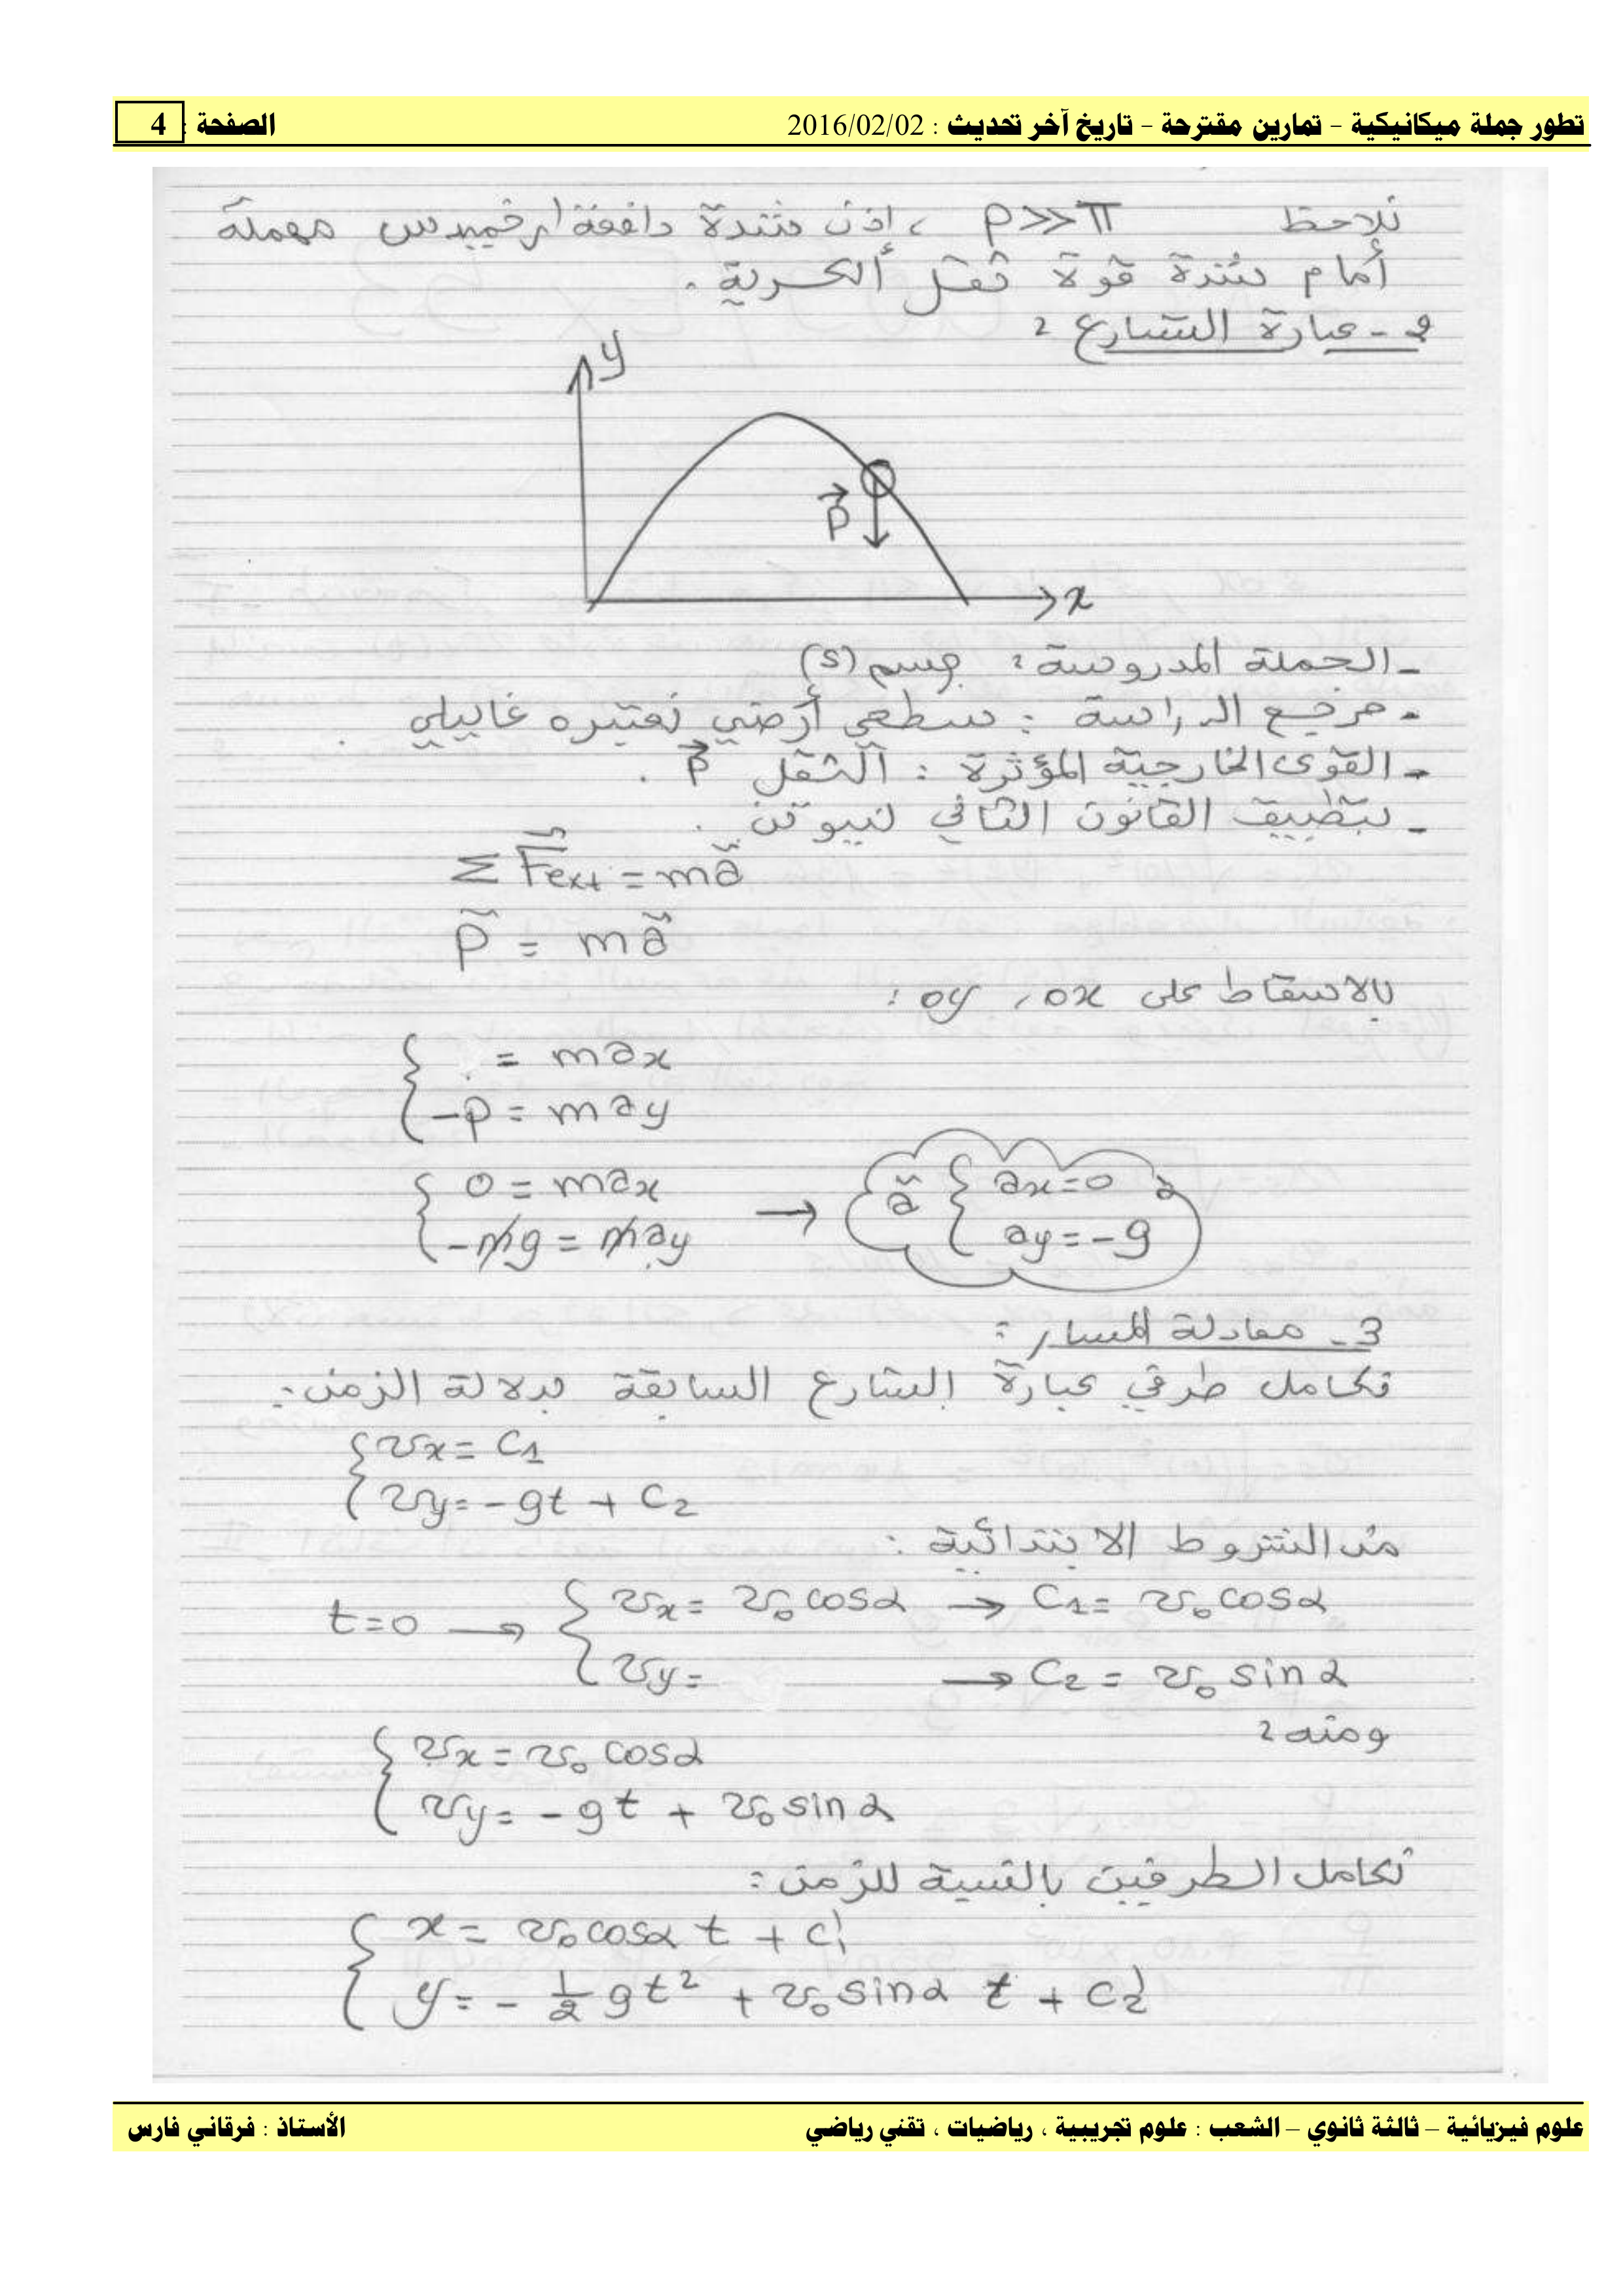 تطور جملة ميكانيكية - تمارين مقترحة - تاريخ آخر تحديث : 2016/02/02 الصفحة : 4
نلاحظ P>>π ، اذن شدة دافعة ارخميدس مهملة
أمام شدة قوة ثقل الكرية .
2 - عبارة التسارع :
y
P⃗
x
- الجملة المدروسة : جسم (S)
- مرجع الدراسة : سطحي أرضي نعتبره غاليلي
- القوى الخارجية المؤثرة : الثقل P⃗ .
- بتطبيق القانون الثاني لنيوتن .
Σ F⃗ext = ma⃗
P⃗ = ma⃗
بالاسقاط على ox ، oy :
{ = max
-P = may
{ 0 = max
-mg = may → a⃗ { ax=0
ay=-g
3 - معادلة المسار :
نكامل طرفي عبارة التسارع السابقة بدلالة الزمن :
{ vx = C1
vy = -gt + C2
من الشروط الابتدائية :
t=0 → { vx = v0 cosα → C1 = v0 cosα
vy = → C2 = v0 sinα
ومنه :
{ vx = v0 cosα
vy = -gt + v0 sinα
نكامل الطرفين بالنسبة للزمن :
{ x = v0 cosα t + C1'
y = - 1/2 gt² + v0 sinα t + C2'
علوم فيزيائية – ثالثة ثانوي – الشعب : علوم تجريبية ، رياضيات ، تقني رياضي الأستاذ : فرقاني فارس